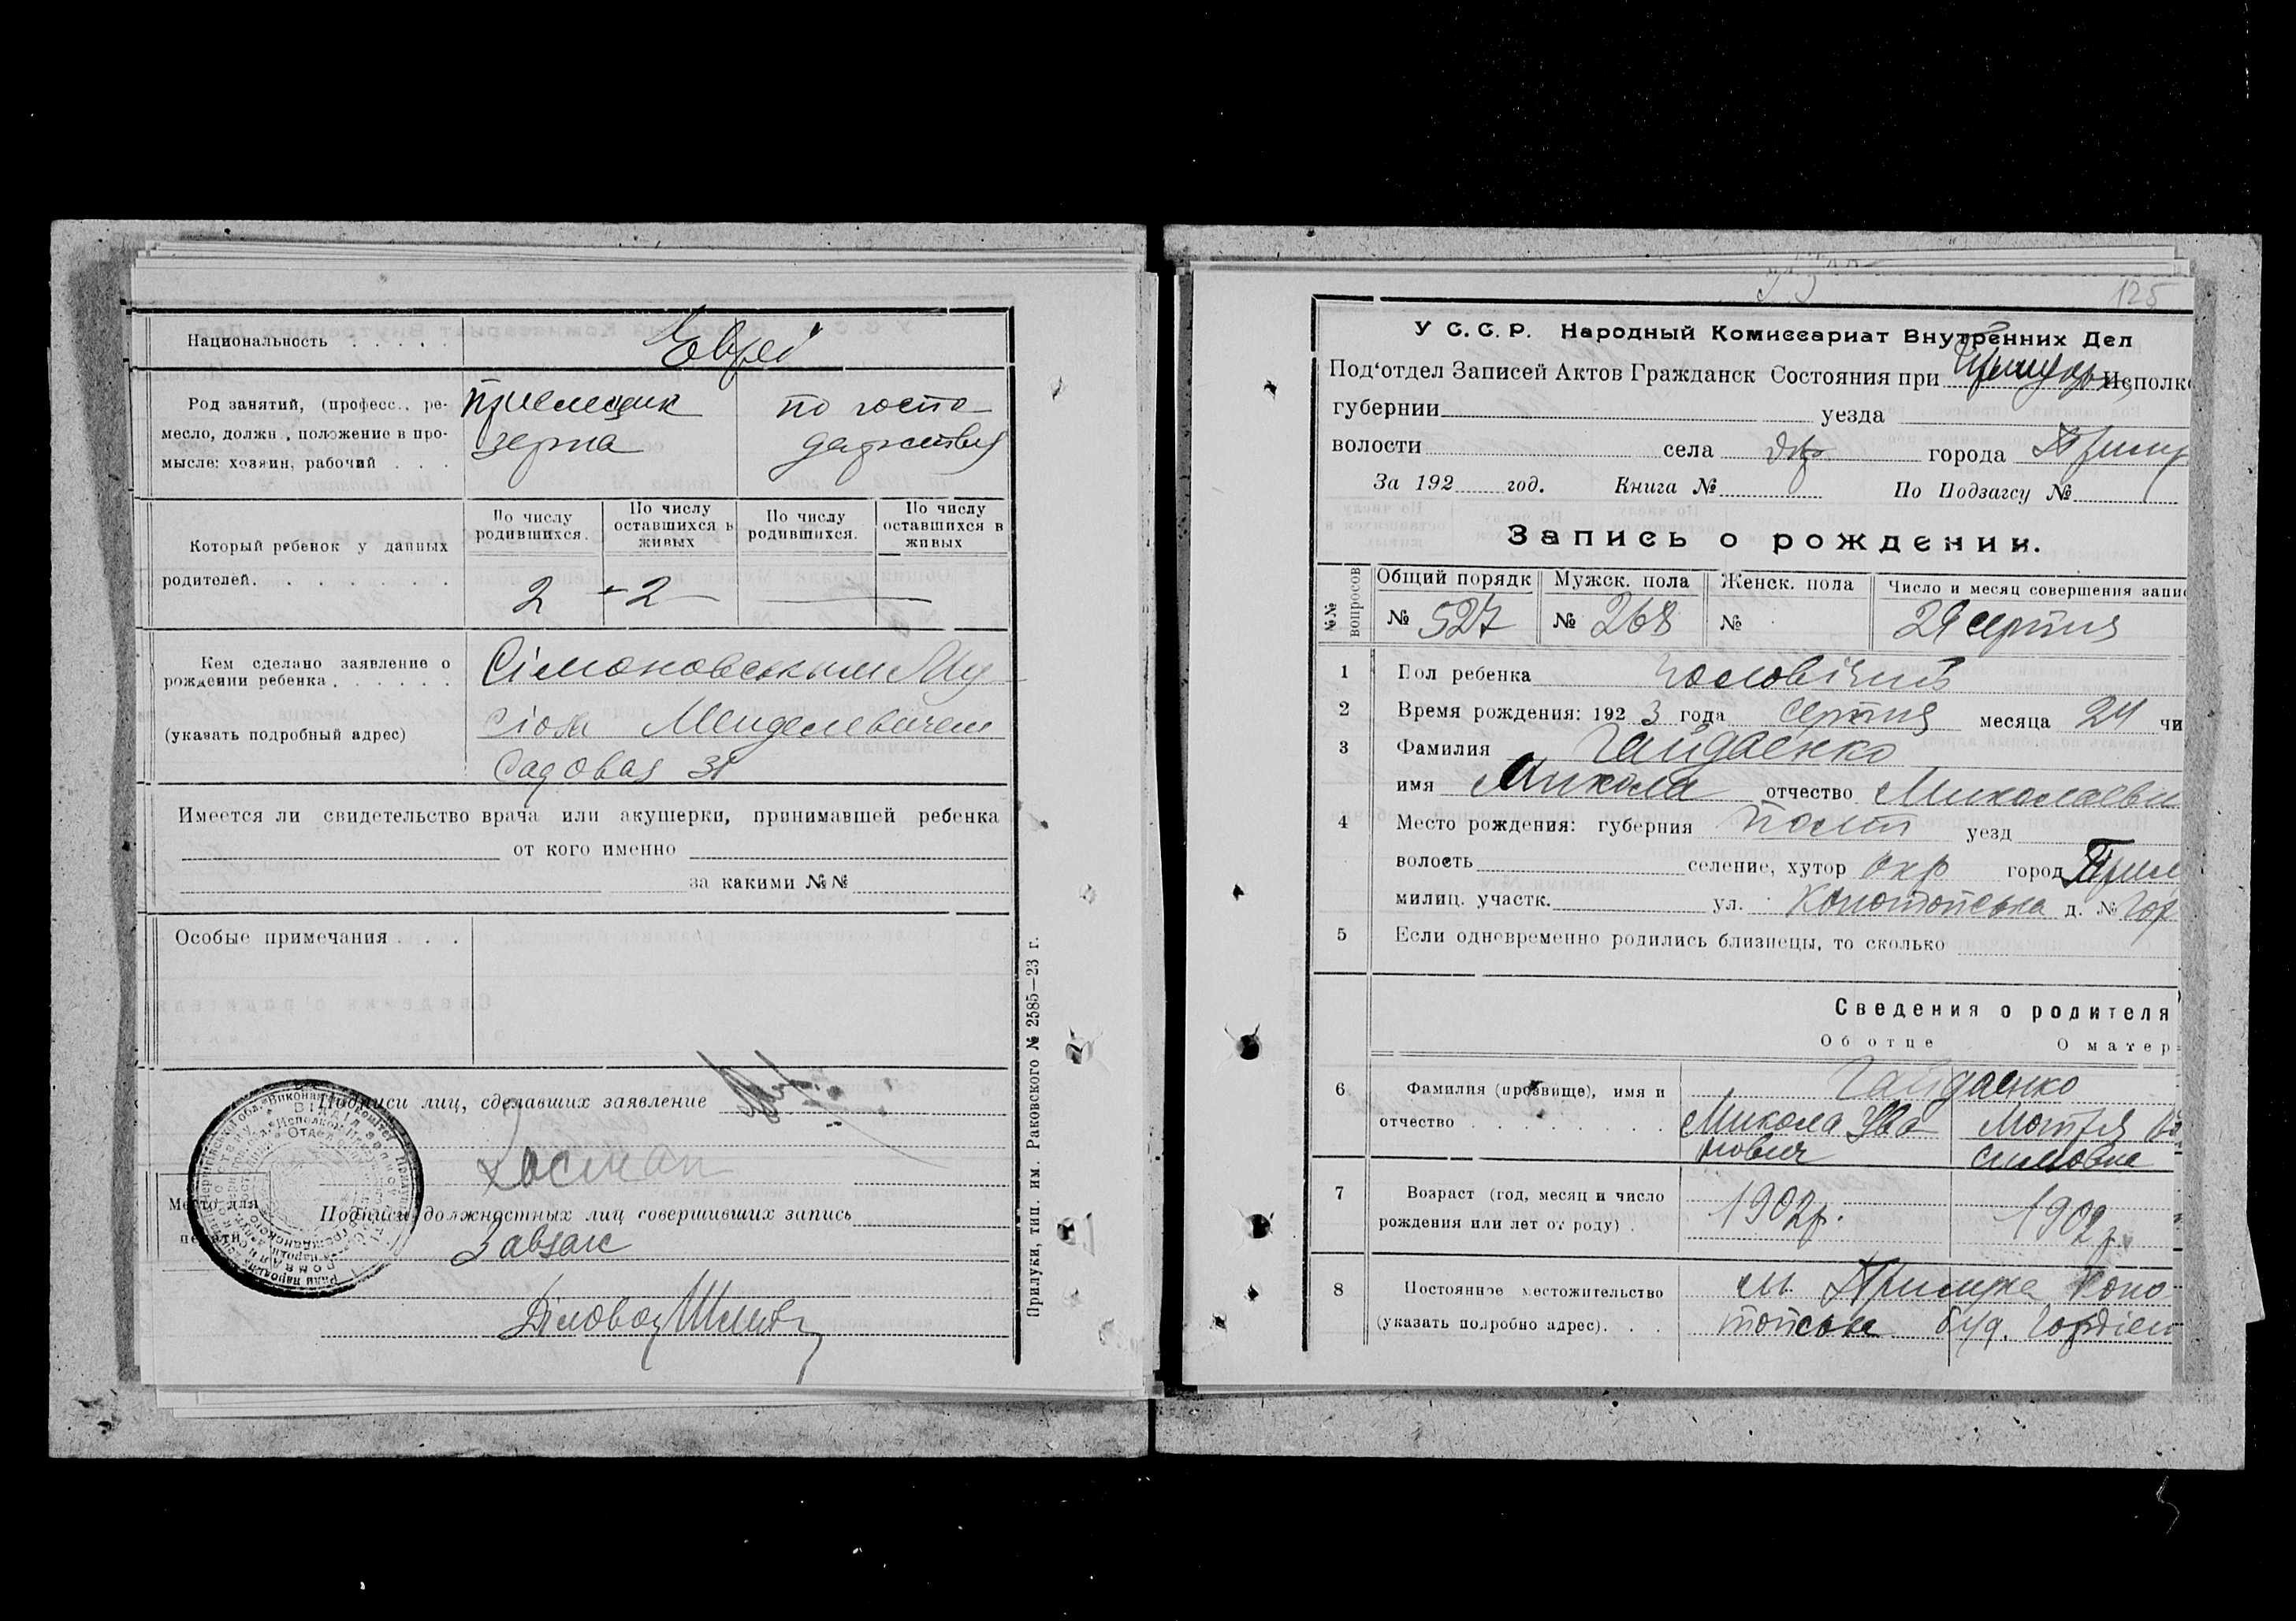 Национальность . . . . .
Еврей
Род занятий, (професс., ре-
месло, должн., положение в про-
мысле: хозяин, рабочий . . .
приемщик
зерна
по госпо-
дарству
Который ребенок у данных
родителей. . . . . . . . .
По числу родившихся.
По числу оставшихся в живых
По числу родившихся.
По числу оставшихся в живых
2 - 2 -
Кем сделано заявление о
рождении ребенка . . . . . .
(указать подробный адрес)
Сімоновським
Менделевичем
Садовая 31
Имеется ли свидетельство врача или акушерки, принимавшей ребенка
от кого именно
за какими №№
Особые примечания . . .
Подписи лиц, сделавших заявление
Место для
печати
Подписи должностных лиц совершивших запись
Завзагс
Діловод
Прилуки, тип. им. Раковского № 2585—23 г.
125
У С. С. Р. Народный Комиссариат Внутренних Дел
Под‘отдел Записей Актов Гражданск Состояния при Исполк
губернии уезда
волости села окр города Прилу
За 192 год. Книга № По Подзагсу №
Запись о рождении.
№№ вопросов
Общий порядк
№ 527
Мужск. пола
№ 268
Женск. пола
№
Число и месяц совершения запис
29 серпня
1 Пол ребенка чоловічий
2 Время рождения: 192 3 года серпня месяца 24 чи
3 Фамилия Гайдаенко
имя Микола отчество Миколаеви
4 Место рождения: губерния Полт уезд
волость селение, хутор окр город Прил
милиц. участк. ул. Конотопська д. № Гор
5 Если одновременно родились близнецы, то сколько
Сведения о родителя
Об отце О матер
6 Фамилия (прозвище), имя и
отчество . . . . . . . . .
Гайдаенко
Микола Ива
нович
Мотря
симовна
7 Возраст (год, месяц и число
рождения или лет от роду) .
1902р.
1902р.
8 Постоянное местожительство
(указать подробно адрес). . .
м. Прилука Коно
топська буд. Гордіен